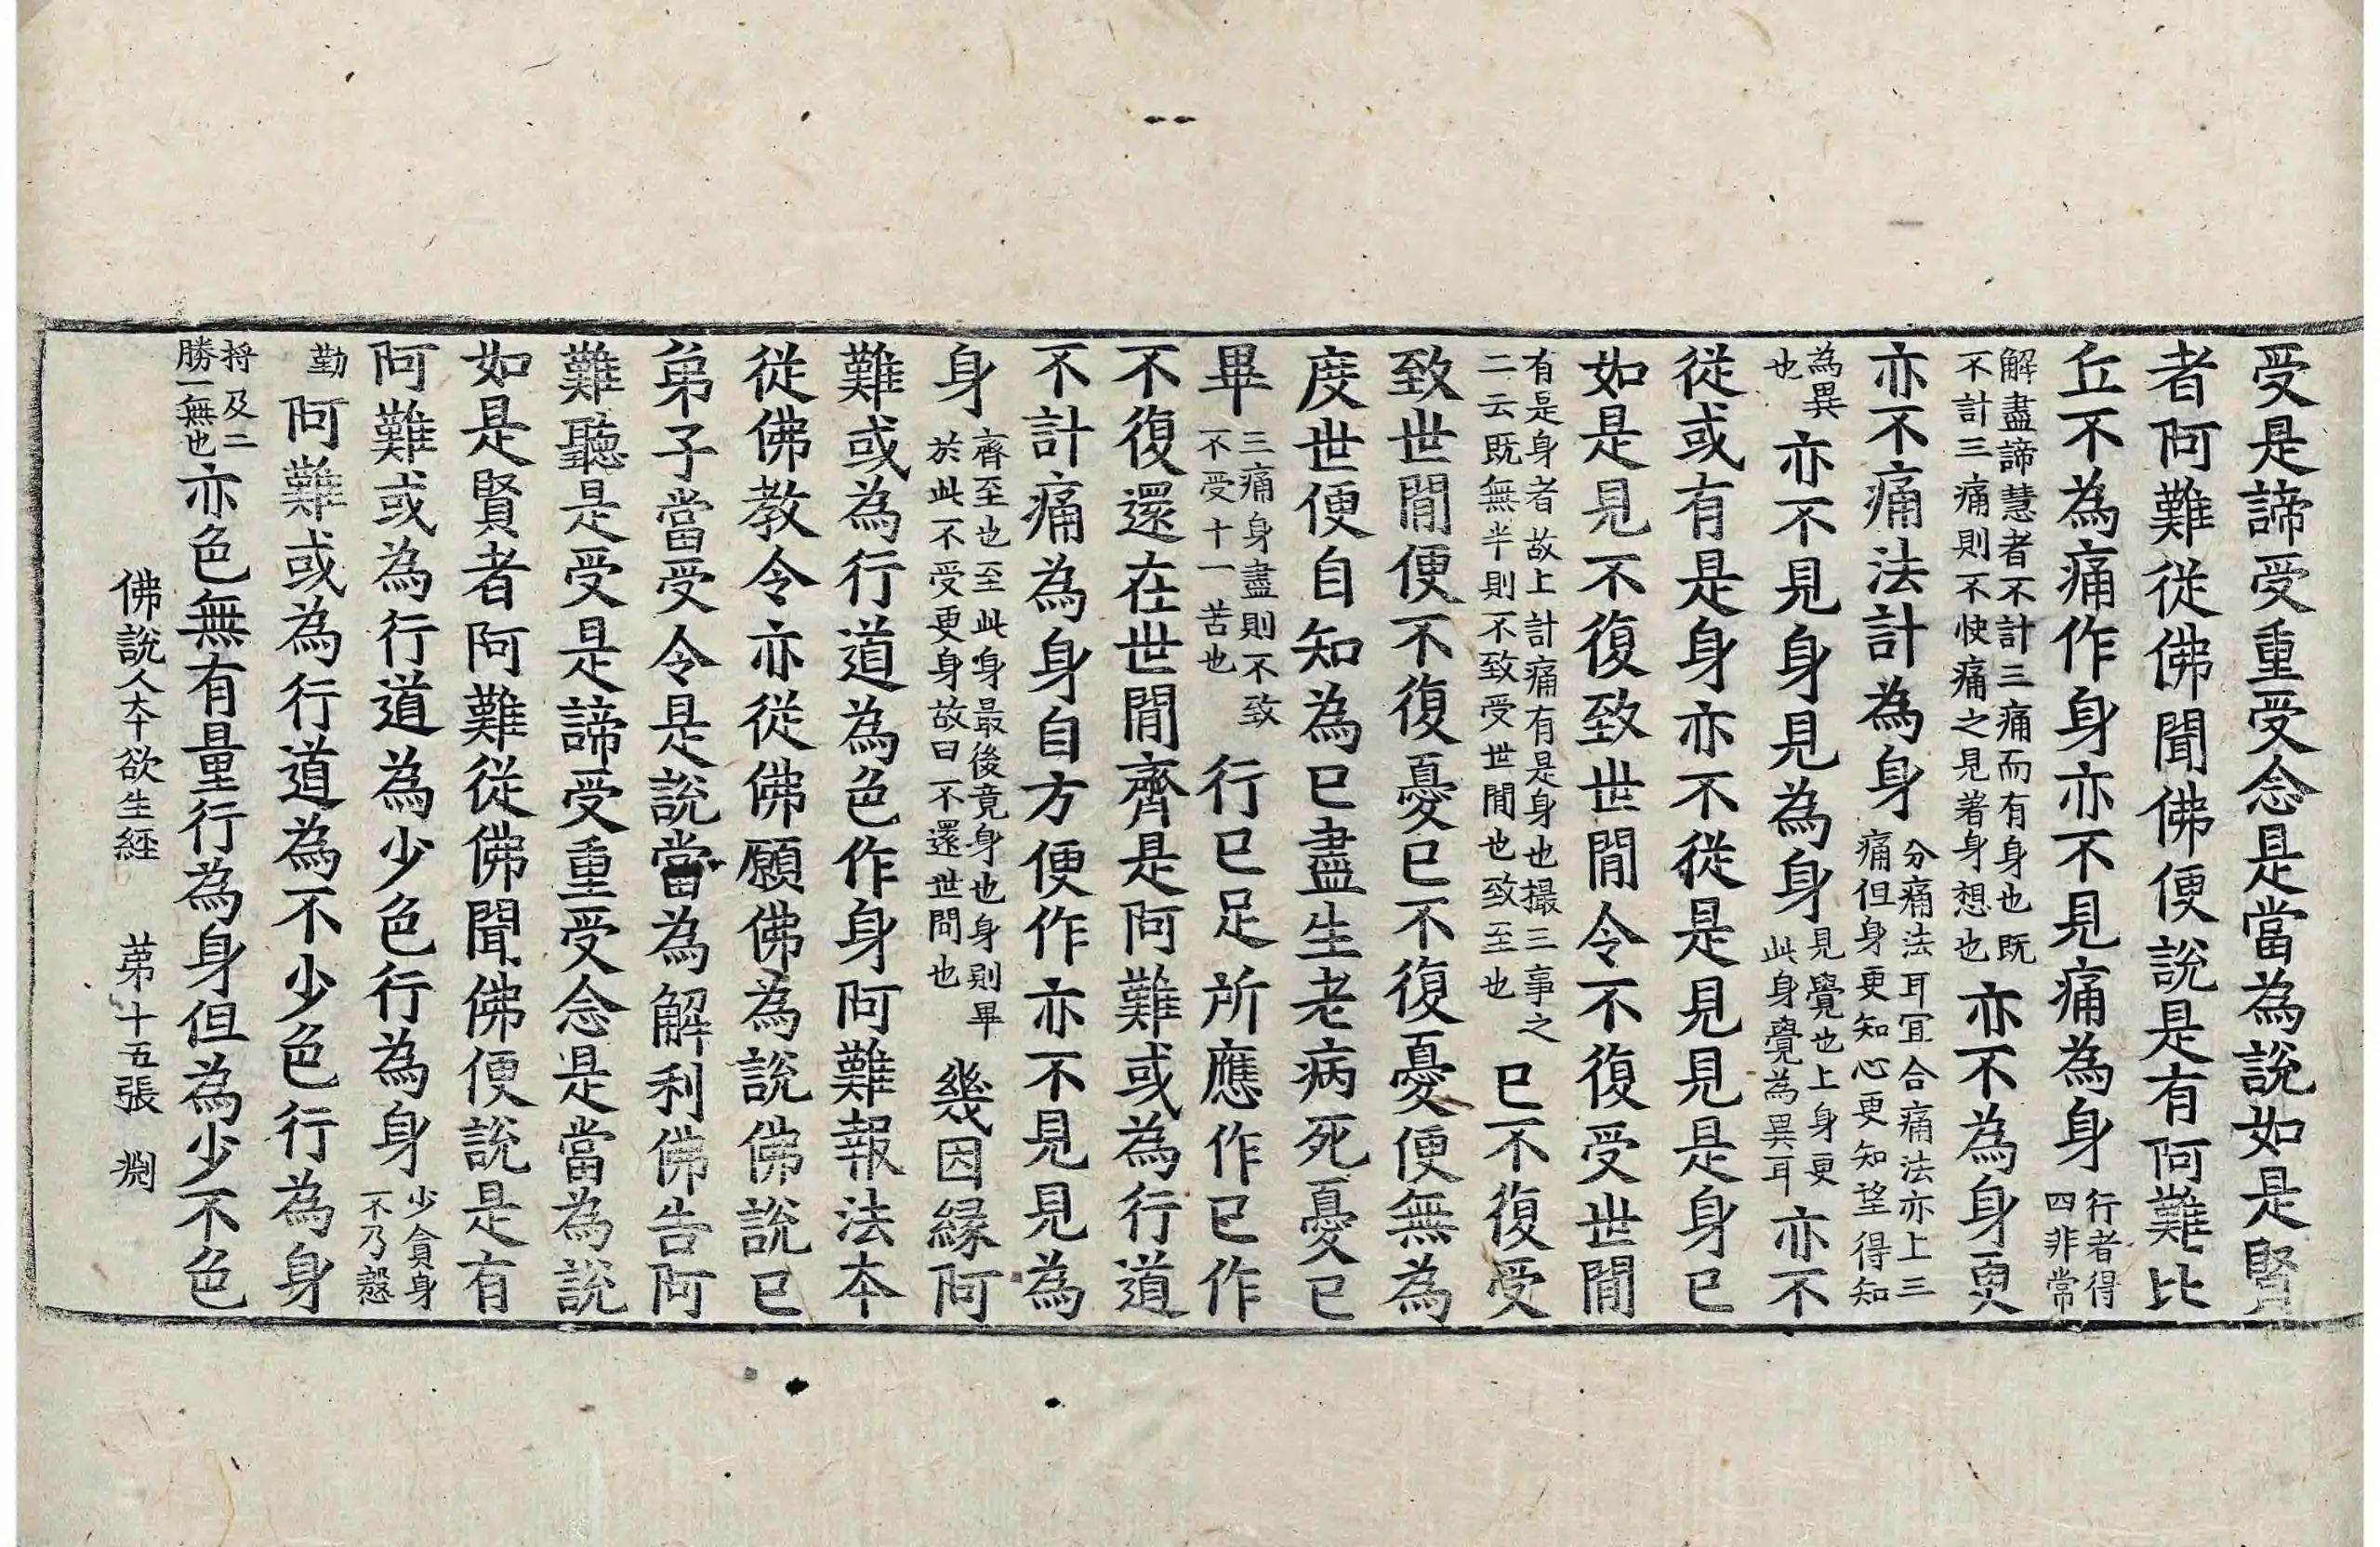 受是諦受重受念是當為說如是賢
者阿難從佛聞佛便說是有阿難比
丘不為痛作身亦不見痛為身行者得四非常
解盡諦慧者不計三痛而有身也既不計三痛則不快痛之見著身想也亦不為身更
亦不痛法計為身分痛法耳冝合痛法亦上三痛但身更知心更知望得知
為異也亦不見身見為身見覺也上身更此身覺為異耳亦不
從或有是身亦不從是見見是身已
如是見不復致世間令不復受世間
有是身者故上計痛有是身也撮三事之二云既無半則不致受世間也致至也已不復受
致世間便不復憂已不復憂便無為
度世便自知為已盡生老病死憂已
畢三痛身盡則不致不受十一苦也行已足所應作已作
不復還在世間齊是阿難或為行道
不計痛為身自方便作亦不見見為
身齊至也至此身最後竟身也身則畢於此不受更身故曰不還世間也幾因緣阿
難或為行道為色作身阿難報法本
從佛教令亦從佛願佛為說佛說已
弟子當受令是說當為解利佛告阿
難聽是受是諦受重受念是當為說
如是賢者阿難從佛聞佛便說是有
阿難或為行道為少色行為身少貪身不乃慇
勤阿難或為行道為不少色行為身
將及二勝一無也亦色無有量行為身但為少不色
佛說人本欲生經　苐十五張　渕